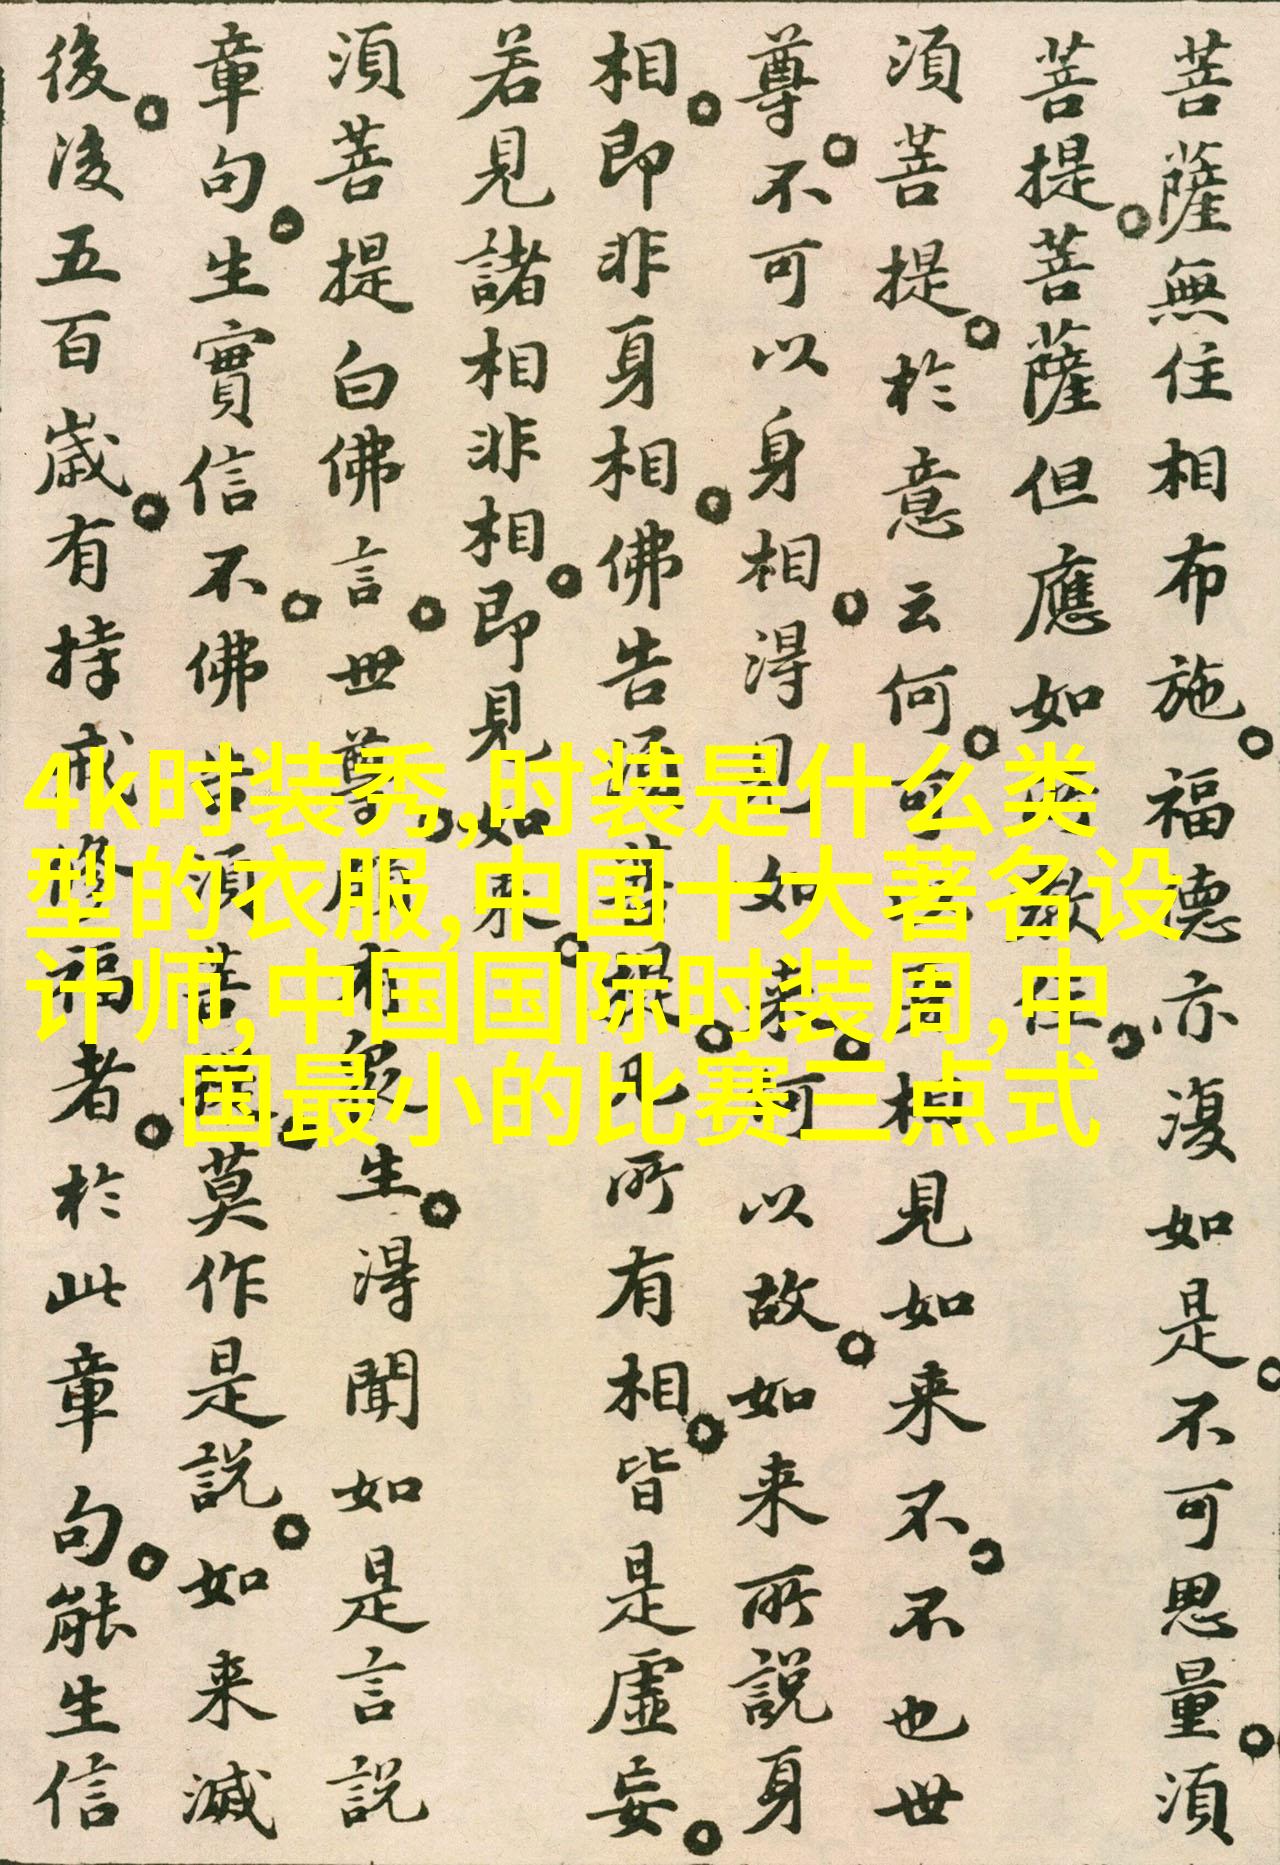 菩薩無住相布施。福德亦復如是。不可思量。須
菩提。菩薩但應如所教住。
須菩提。於意云何。可以身相見如来不。不也世
尊。不可以身相。得見如来。何以故。如来所說身
相。即非身相。佛告須菩提。凡所有相。皆是虛妄。
若見諸相非相。即見如来。
須菩提白佛言。世尊。頗有衆生。得聞如是言說
章句。生實信不。佛告須菩提。莫作是說。如来滅
後。後五百歲。有持戒修福者。於此章句。能生信
4k时装秀,时装是什么类
型的衣服,中国十大著名设
计师,中国国际时装周,中
国最小的比赛三点式